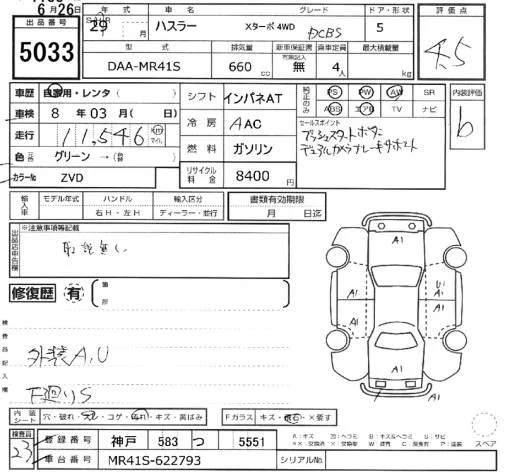 6月26日
出品番号
5033
年式 車名 グレード ドア・形状
29 月 ハスラー Xターボ 4WD DCBS 5
型式 排気量 新車保証書 乗車定員 最大積載量
DAA-MR41S 660 cc 無 4人 kg
評価点
4.5
車歴 自家用・レンタ( )
車検 8年03月(日)
走行 11,546 km
色 グリーン →( )
カラーNo ZVD
シフト インパネAT
冷房 AAC
燃料 ガソリン
リサイクル料金 8400円
純正のみ PS PW AW SR
ABS エアB TV ナビ
セールスポイント
プッシュスタートボタン
デュアルカメラブレーキサポート
内装評価
b
輸入車 モデル年式 ハンドル 輸入区分
年 右H・左H ディーラー・並行
書類有効期限
月 日迄
出品店申告欄
※注意事項等記載
取説無し
修復歴 有
検査員記入欄
外装A,U
下廻りS
A1
A1
A1
U1
A1
A1
A1
内装シート 穴・破れ・スレ・コゲ・汚れ・キズ・黄ばみ
Fガラス キズ・飛石・×要す
検査員
23
登録番号 神戸 583 つ 5551
車台番号 MR41S-622793 シリアルNo
A:キズ U:ヘコミ B:キズ&ヘコミ S:サビ
スペア